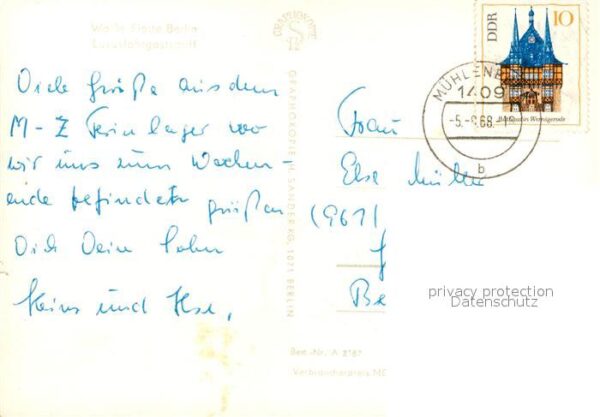 Weiße Flotte Berlin
Luxusfahrgastschiff
Viele Grüße aus dem
M-Z Ferienlager wo
wir uns zum Wochen-
ende befinden grüßen
Dich Dein Sohn
Heinz und Ilse,
GRAPHOKOPIE
GRAPHOKOPIE H. SANDER KG, 1071 BERLIN
Best.-Nr. A
Verbraucherpreis
DDR
10
Rathaus in Wernigerode
MÜHLENBE
1409
b
Frau
Else Müller
(961)
Be
privacy protection
Datenschutz